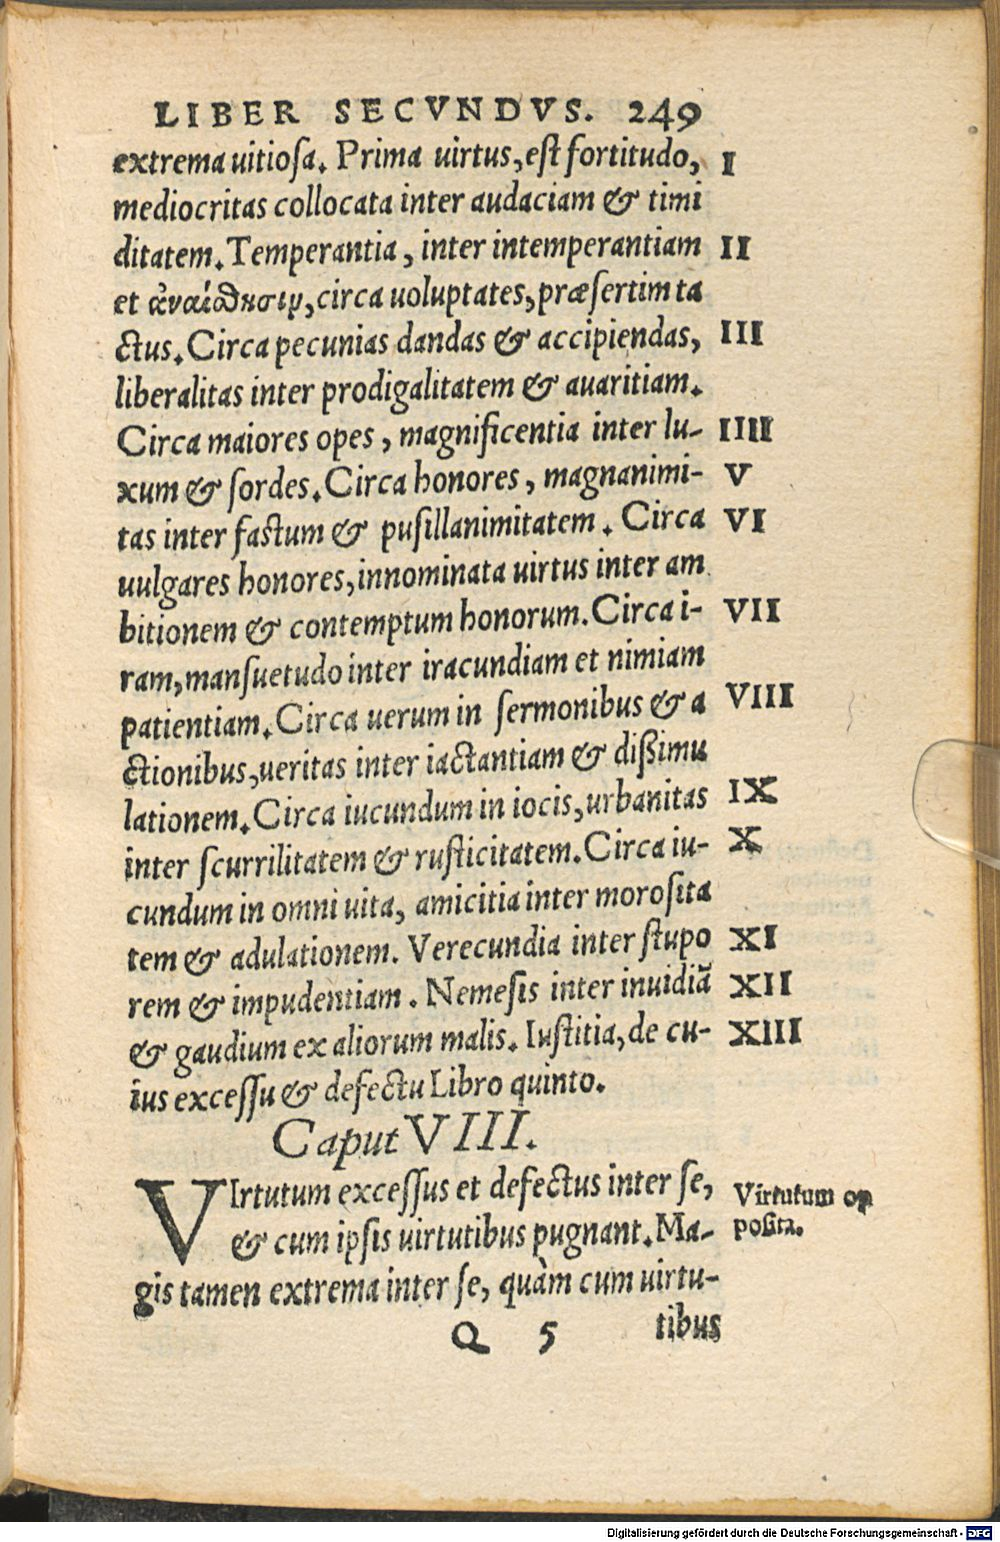 LIBER SECVNDVS. 249
extrema uitiosa. Prima uirtus, est fortitudo, I
mediocritas collocata inter audaciam & timi
ditatem. Temperantia, inter intemperantiam II
et ἀναίσθησιν, circa uoluptates, præsertim ta
ctus. Circa pecunias dandas & accipiendas, III
liberalitas inter prodigalitatem & auaritiam.
Circa maiores opes, magnificentia inter lu- IIII
xum & sordes. Circa honores, magnanimi- V
tas inter fastum & pusillanimitatem. Circa VI
uulgares honores, innominata uirtus inter am
bitionem & contemptum honorum. Circa i- VII
ram, mansuetudo inter iracundiam et nimiam
patientiam. Circa uerum in sermonibus & a VIII
ctionibus, ueritas inter iactantiam & dißimu
lationem. Circa iucundum in iocis, urbanitas IX
inter scurrilitatem & rusticitatem. Circa iu- X
cundum in omni uita, amicitia inter morosita
tem & adulationem. Verecundia inter stupo XI
rem & impudentiam. Nemesis inter inuidiã XII
& gaudium ex aliorum malis. Iustitia, de cu- XIII
ius excessu & defectu Libro quinto.
Caput VIII.
VIrtutum excessus et defectus inter se, Virtutum op
& cum ipsis uirtutibus pugnant. Ma- posita.
gis tamen extrema inter se, quàm cum uirtu-
Q 5 tibus
Digitalisierung gefördert durch die Deutsche Forschungsgemeinschaft - DFG